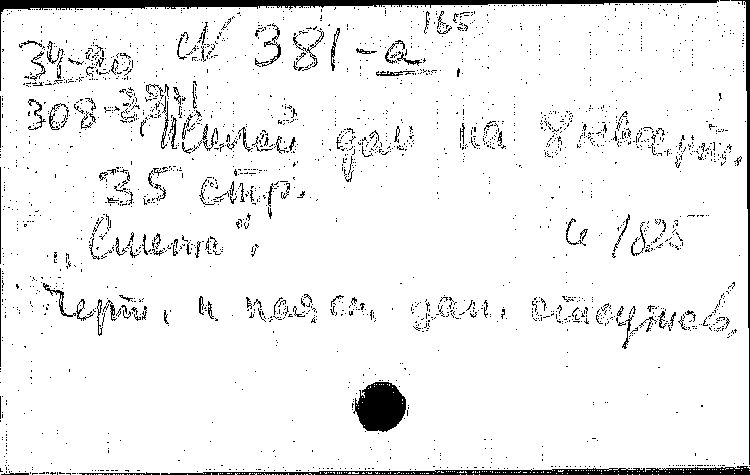 34-20 № 381-а 165
308-
Жилой дом на 8 кварт.
35 стр.
„Смета".
и 1825
Черт. и поясн. дан. отсутств.